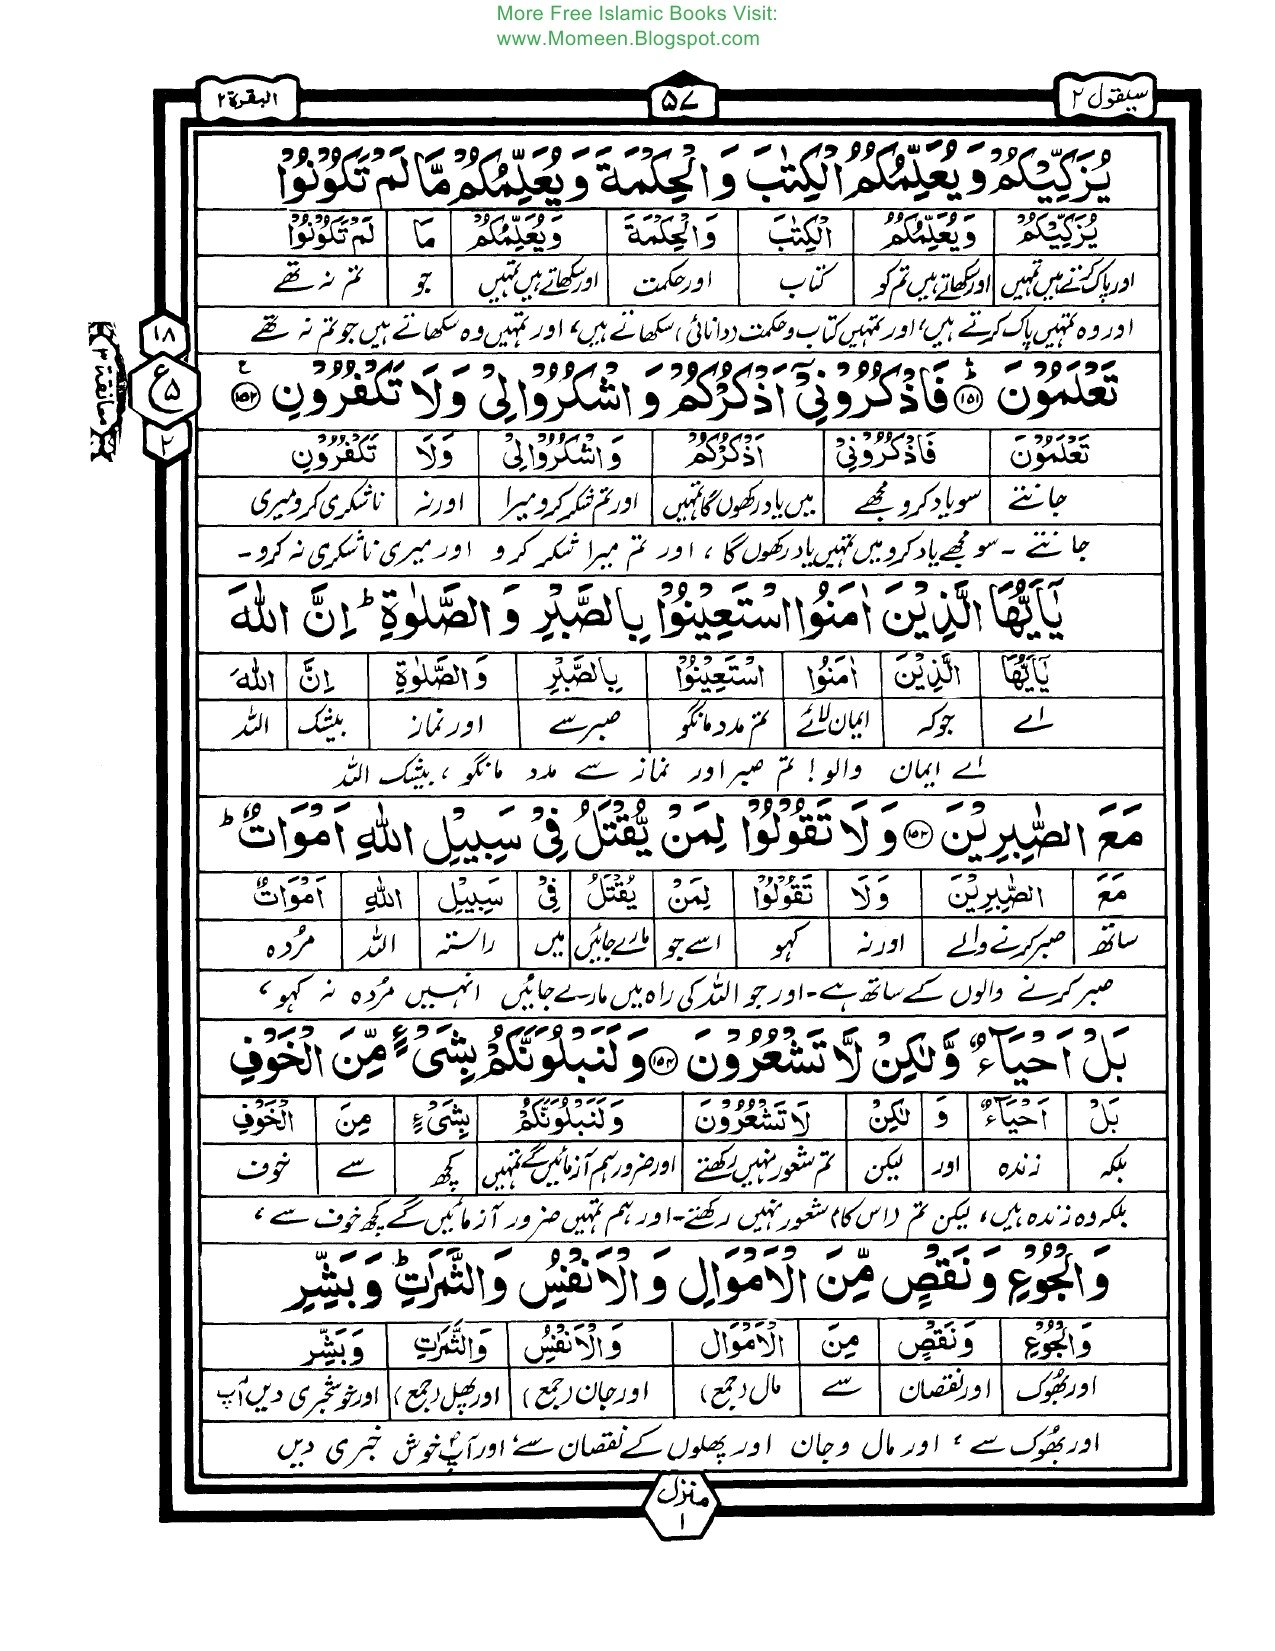 More Free Islamic Books Visit:
www.Momeen.Blogspot.com
سیقول ۲
۵۷
البقرۃ ۲
يُزَكِّيْكُمْ وَيُعَلِّمُكُمُ الْكِتٰبَ وَالْحِكْمَةَ وَيُعَلِّمُكُمْ مَّا لَمْ تَكُوْنُوْا
يُزَكِّيْكُمْ وَيُعَلِّمُكُمُ الْكِتٰبَ وَالْحِكْمَةَ وَيُعَلِّمُكُمْ مَا لَمْ تَكُوْنُوْا
اور پاک کرتے ہیں تمہیں اور سکھاتے ہیں تم کو کتاب اور حکمت اور سکھاتے ہیں تمہیں جو تم نہ تھے
اور وہ تمہیں پاک کرتے ہیں، اور تمہیں کتاب و حکمت (دانائی) سکھاتے ہیں، اور تمہیں وہ سکھاتے ہیں جو تم نہ تھے
۱۸
ع
۵
۲
معانقة ۳
تَعْلَمُوْنَ ۱۵۱ فَاذْكُرُوْنِيْٓ اَذْكُرْكُمْ وَاشْكُرُوْا لِيْ وَلَا تَكْفُرُوْنِ ۱۵۲
تَعْلَمُوْنَ فَاذْكُرُوْنِيْٓ اَذْكُرْكُمْ وَاشْكُرُوْا لِيْ وَلَا تَكْفُرُوْنِ
جانتے سو یاد کرو مجھے میں یاد رکھوں گا تمہیں اور تم شکر کرو میرا اور نہ ناشکری کرو میری
جانتے ۔ سو مجھے یاد کرو میں تمہیں یاد رکھوں گا، اور تم میرا شکر کرو اور میری ناشکری نہ کرو ۔
يٰٓاَيُّهَا الَّذِيْنَ اٰمَنُوا اسْتَعِيْنُوْا بِالصَّبْرِ وَالصَّلٰوةِ ؕ اِنَّ اللّٰهَ
يٰٓاَيُّهَا الَّذِيْنَ اٰمَنُوا اسْتَعِيْنُوْا بِالصَّبْرِ وَالصَّلٰوةِ اِنَّ اللّٰهَ
اے جو کہ ایمان لائے تم مدد مانگو صبر سے اور نماز بیشک اللہ
اے ایمان والو! تم صبر اور نماز سے مدد مانگو، بیشک اللہ
مَعَ الصّٰبِرِيْنَ ۱۵۳ وَلَا تَقُوْلُوْا لِمَنْ يُّقْتَلُ فِيْ سَبِيْلِ اللّٰهِ اَمْوَاتٌ ؕ
مَعَ الصّٰبِرِيْنَ وَلَا تَقُوْلُوْا لِمَنْ يُقْتَلُ فِيْ سَبِيْلِ اللّٰهِ اَمْوَاتٌ
ساتھ صبر کرنے والے اور نہ کہو اسے جو مارے جائیں میں راستہ اللہ مُردہ
صبر کرنے والوں کے ساتھ ہے۔ اور جو اللہ کی راہ میں مارے جائیں انہیں مُردہ نہ کہو،
بَلْ اَحْيَآءٌ وَّلٰكِنْ لَّا تَشْعُرُوْنَ ۱۵۴ وَلَنَبْلُوَنَّكُمْ بِشَيْءٍ مِّنَ الْخَوْفِ
بَلْ اَحْيَآءٌ وَ لٰكِنْ لَا تَشْعُرُوْنَ وَلَنَبْلُوَنَّكُمْ بِشَيْءٍ مِنَ الْخَوْفِ
بلکہ زندہ اور لیکن تم شعور نہیں رکھتے اور ضرور ہم آزمائیں گے تمہیں کچھ سے خوف
بلکہ وہ زندہ ہیں، لیکن تم (اس کا) شعور نہیں رکھتے۔ اور ہم تمہیں ضرور آزمائیں گے کچھ خوف سے،
وَالْجُوْعِ وَنَقْصٍ مِّنَ الْاَمْوَالِ وَالْاَنْفُسِ وَالثَّمَرٰتِ ؕ وَبَشِّرِ
وَالْجُوْعِ وَنَقْصٍ مِنَ الْاَمْوَالِ وَالْاَنْفُسِ وَالثَّمَرٰتِ وَبَشِّرِ
اور بھُوک اور نقصان سے مال (جمع) اور جان (جمع) اور پھل (جمع) اور خوشخبری دیں آپ
اور بھُوک سے، اور مال و جان اور پھلوں کے نقصان سے، اور آپؐ خوش خبری دیں
منزل
۱